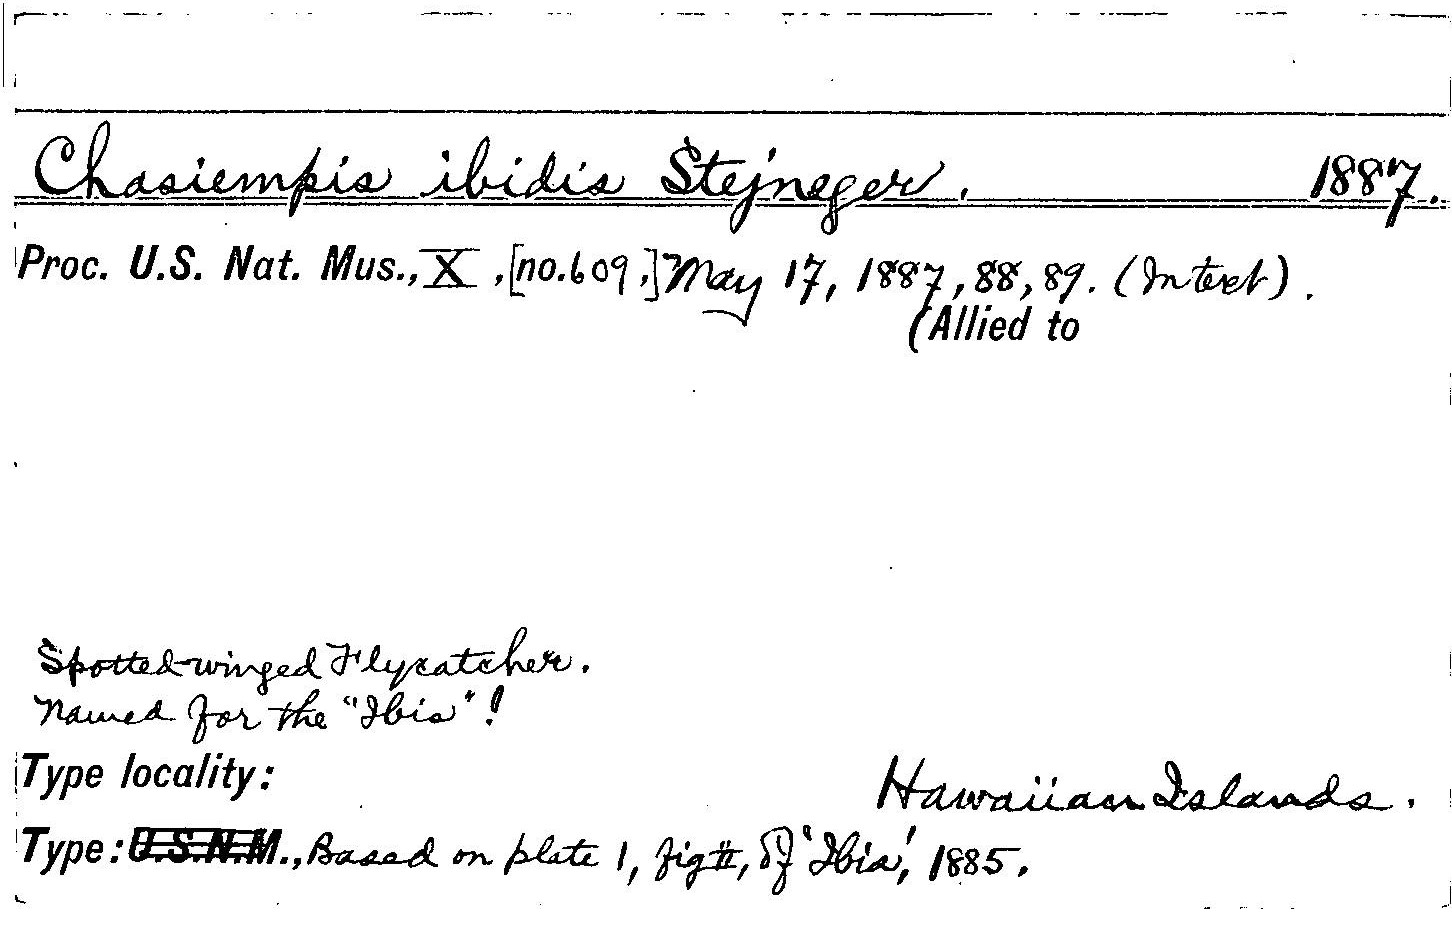 Chasiempis ibidis Stejneger. 1887.
Proc. U.S. Nat. Mus., X, [no. 609,] May 17, 1887, 88, 89. (In text).
(Allied to
Spotted-winged Flycatcher.
Named for the "Ibis"!
Type locality: Hawaiian Islands.
Type: U.S.N.M., Based on plate 1, fig II, of 'Ibis', 1885.